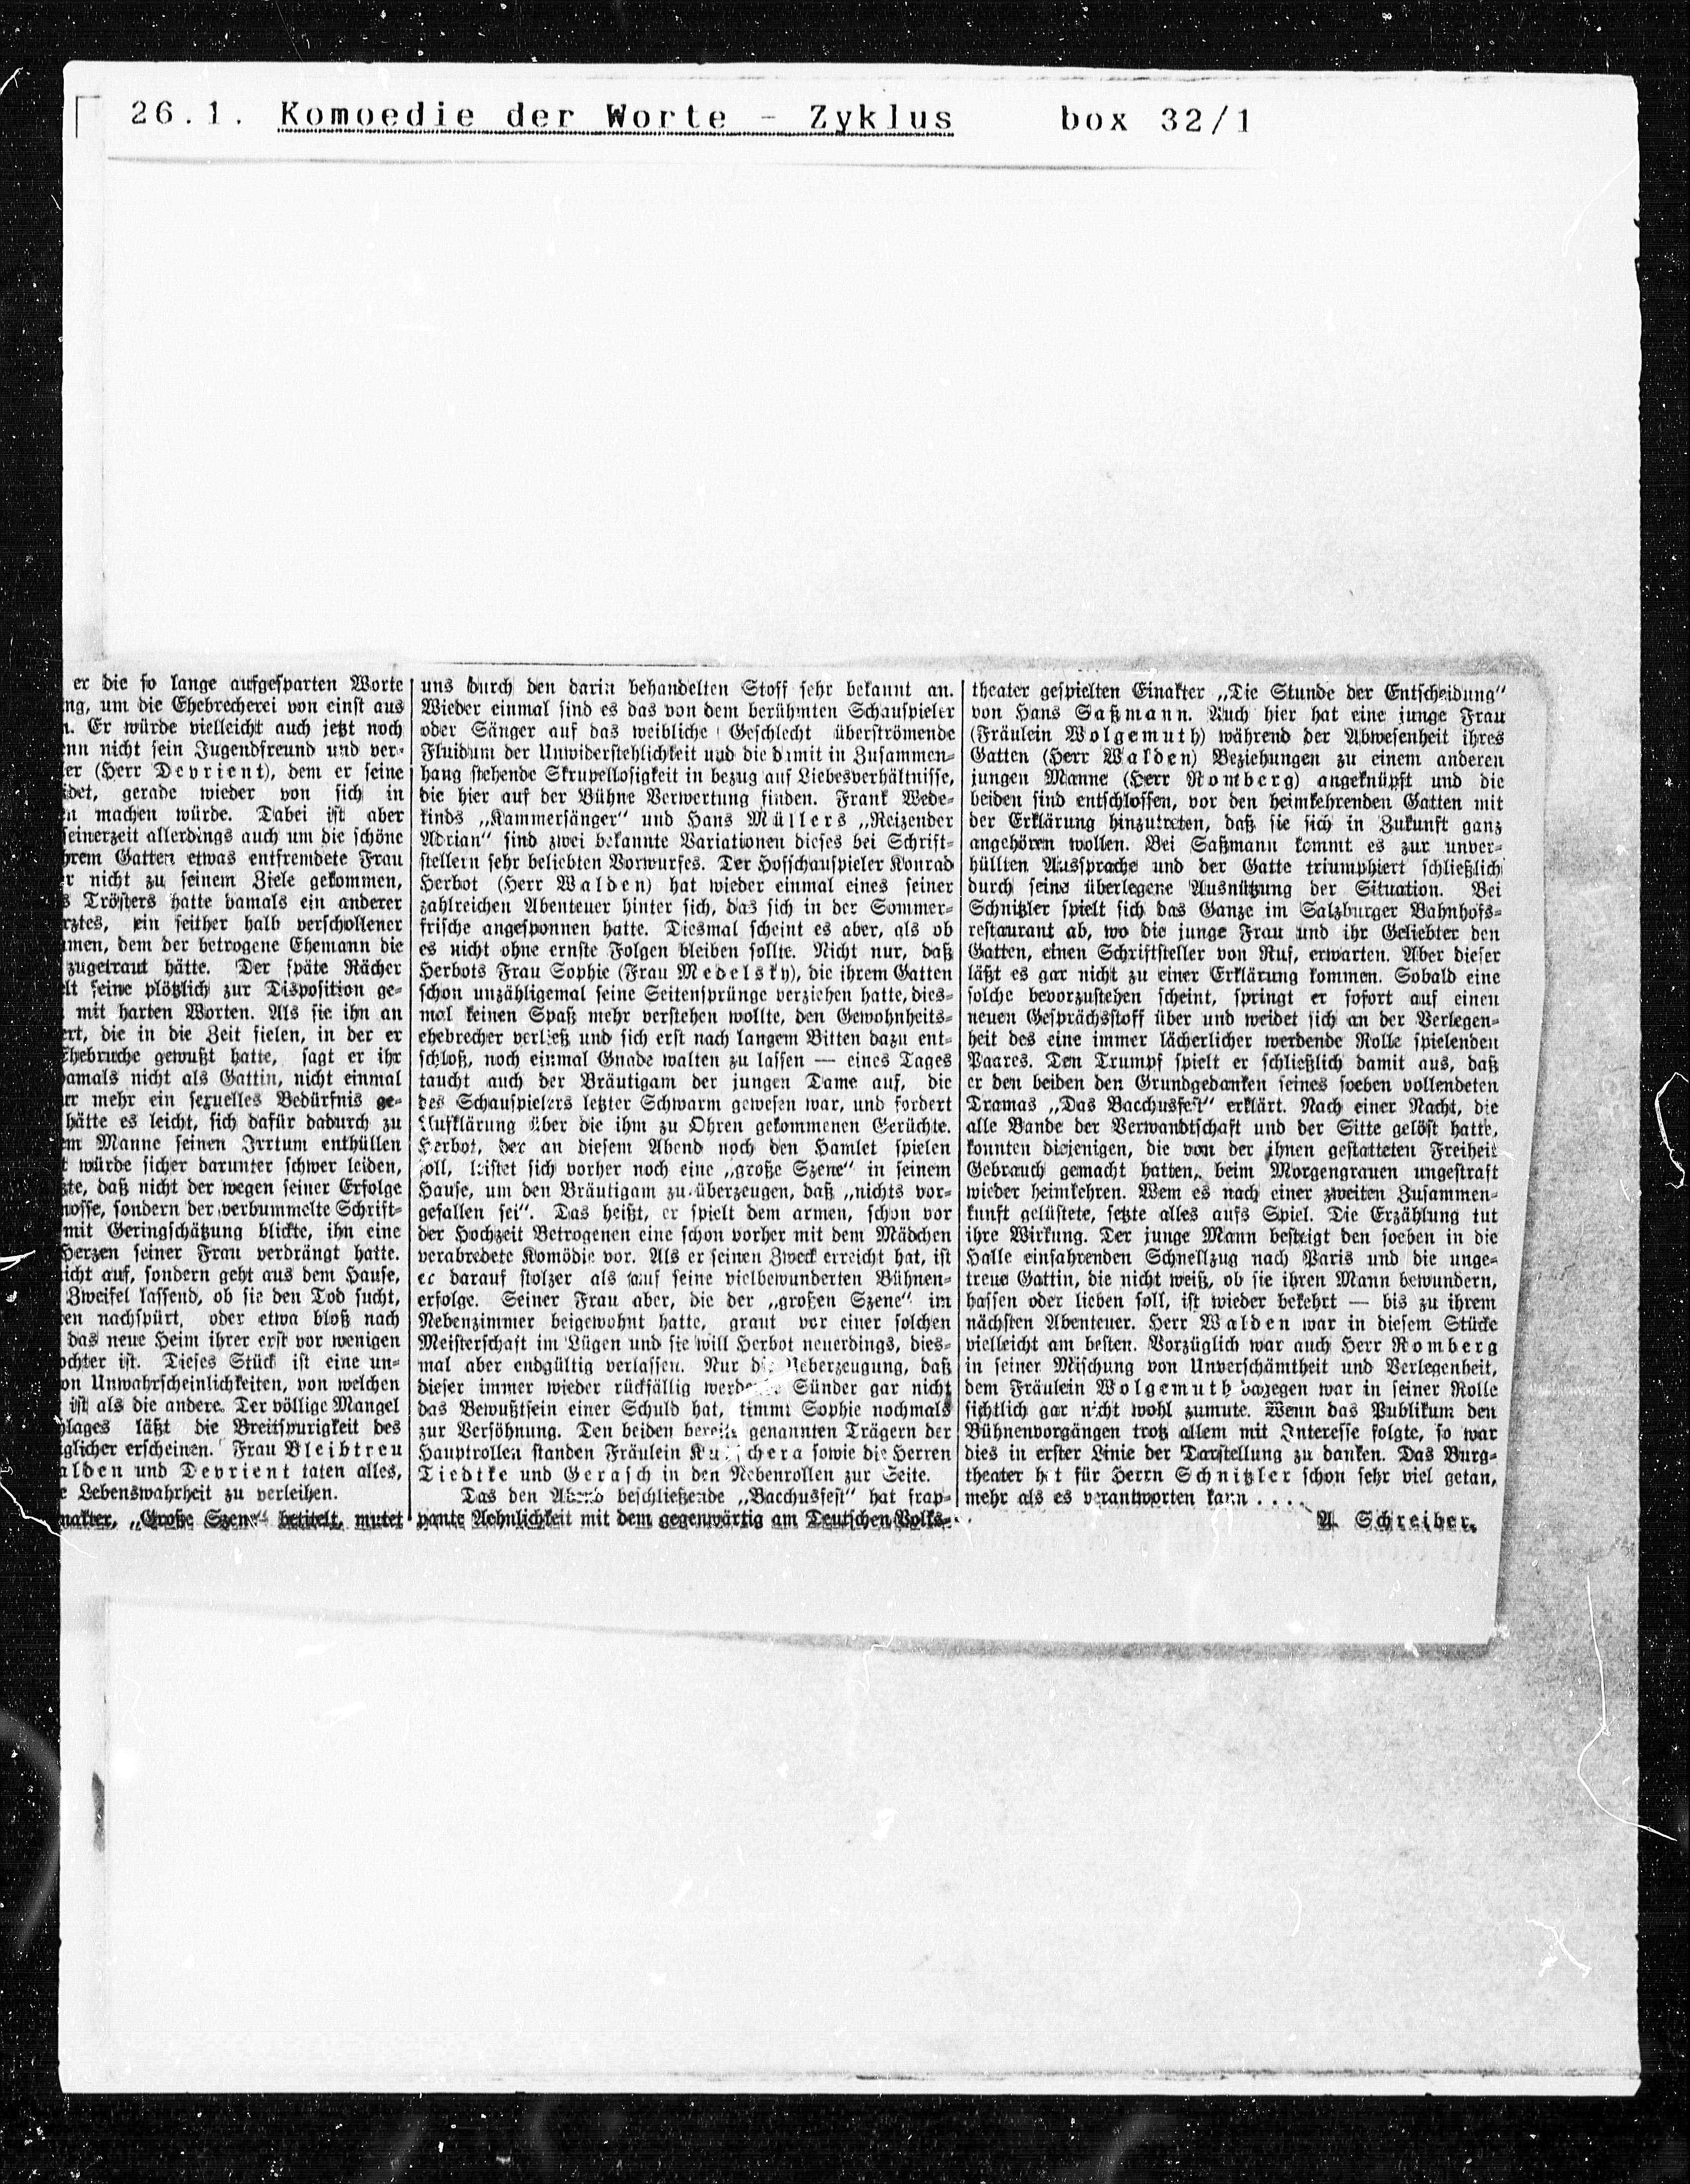 26.1. Komoedie der Worte - Zyklus box 32/1
er die so lange aufgesparten Worte
ng, um die Ehebrecherei von einst aus
n. Er würde vielleicht auch jetzt noch
enn nicht sein Jugendfreund und ver-
er (Herr Devrient), dem er seine
idet, gerade wieder von sich in
en machen würde. Dabei ist aber
seinerzeit allerdings auch um die schöne
hrem Gatten etwas entfremdete Frau
r nicht zu seinem Ziele gekommen,
s Trösters hatte damals ein anderer
rztes, ein seither halb verschollener
mmen, dem der betrogene Ehemann die
zugetraut hätte. Der späte Rächer
elt seine plötzlich zur Disposition ge-
mit harten Worten. Als sie ihn an
ert, die in die Zeit fielen, in der er
Ehebruche gewußt hatte, sagt er ihr
damals nicht als Gattin, nicht einmal
ur mehr ein sexuelles Bedürfnis ge-
hätte es leicht, sich dafür dadurch zu
em Manne seinen Irrtum enthüllen
t würde sicher darunter schwer leiden,
zte, daß nicht der wegen seiner Erfolge
nosse, sondern der verbummelte Schrift-
mit Geringschätzung blickte, ihn eine
Herzen seiner Frau verdrängt hatte.
icht auf, sondern geht aus dem Hause,
Zweifel lassend, ob sie den Tod sucht,
en nachspürt, oder etwa bloß nach
das neue Heim ihrer erst vor wenigen
ochter ist. Dieses Stück ist eine un-
on Unwahrscheinlichkeiten, von welchen
ist als die andere. Der völlige Mangel
hlages läßt die Breitspurigkeit des
glicher erscheinen. Frau Bleibtreu
alden und Devrient taten alles,
e Lebenswahrheit zu verleihen.
nakter, „Große Szene“ betitelt, mutet
uns durch den darin behandelten Stoff sehr bekannt an.
Wieder einmal sind es das von dem berühmten Schauspieler
oder Sänger auf das weibliche Geschlecht überströmende
Fluidum der Unwiderstehlichkeit und die damit in Zusammen-
hang stehende Skrupellosigkeit in bezug auf Liebesverhältnisse,
die hier auf der Bühne Verwertung finden. Frank Wede-
kinds „Kammersänger“ und Hans Müllers „Reizender
Adrian“ sind zwei bekannte Variationen dieses bei Schrift-
stellern sehr beliebten Vorwurfes. Der Hofschauspieler Konrad
Herbot (Herr Walden) hat wieder einmal eines seiner
zahlreichen Abenteuer hinter sich, das sich in der Sommer-
frische angesponnen hatte. Diesmal scheint es aber, als ob
es nicht ohne ernste Folgen bleiben sollte. Nicht nur, daß
Herbots Frau Sophie (Frau Medelsky), die ihrem Gatten
schon unzähligemal seine Seitensprünge verziehen hatte, dies-
mal keinen Spaß mehr verstehen wollte, den Gewohnheits-
ehebrecher verließ und sich erst nach langem Bitten dazu ent-
schloß, noch einmal Gnade walten zu lassen — eines Tages
taucht auch der Bräutigam der jungen Dame auf, die
des Schauspielers letzter Schwarm gewesen war, und fordert
Aufklärung über die ihm zu Ohren gekommenen Gerüchte.
Herbot, der an diesem Abend noch den Hamlet spielen
soll, leistet sich vorher noch eine „große Szene“ in seinem
Hause, um den Bräutigam zu überzeugen, daß „nichts vor-
gefallen sei“. Das heißt, er spielt dem armen, schon vor
der Hochzeit Betrogenen eine schon vorher mit dem Mädchen
verabredete Komödie vor. Als er seinen Zweck erreicht hat, ist
er darauf stolzer als auf seine vielbewunderten Bühnen-
erfolge. Seiner Frau aber, die der „großen Szene“ im
Nebenzimmer beigewohnt hatte, graut vor einer solchen
Meisterschaft im Lügen und sie will Herbot neuerdings, dies-
mal aber endgültig verlassen. Nur die Ueberzeugung, daß
dieser immer wieder rückfällig werdende Sünder gar nicht
das Bewußtsein einer Schuld hat, stimmt Sophie nochmals
zur Versöhnung. Den beiden bereits genannten Trägern der
Hauptrollen standen Fräulein Kutschera sowie die Herren
Tiedtke und Gerasch in den Nebenrollen zur Seite.
Das den Abend beschließende „Bacchusfest“ hat frap-
pante Aehnlichkeit mit dem gegenwärtig am Deutschen Volks-
theater gespielten Einakter „Die Stunde der Entscheidung“
von Hans Saßmann. Auch hier hat eine junge Frau
(Fräulein Wolgemuth) während der Abwesenheit ihres
Gatten (Herr Walden) Beziehungen zu einem anderen
jungen Manne (Herr Romberg) angeknüpft und die
beiden sind entschlossen, vor den heimkehrenden Gatten mit
der Erklärung hinzutreten, daß sie sich in Zukunft ganz
angehören wollen. Bei Saßmann kommt es zur unver-
hüllten Aussprache und der Gatte triumphiert schließlich
durch seine überlegene Ausnützung der Situation. Bei
Schnitzler spielt sich das Ganze im Salzburger Bahnhofs-
restaurant ab, wo die junge Frau und ihr Geliebter den
Gatten, einen Schriftsteller von Ruf, erwarten. Aber dieser
läßt es gar nicht zu einer Erklärung kommen. Sobald eine
solche bevorzustehen scheint, springt er sofort auf einen
neuen Gesprächsstoff über und weidet sich an der Verlegen-
heit des eine immer lächerlicher werdende Rolle spielenden
Paares. Den Trumpf spielt er schließlich damit aus, daß
er den beiden den Grundgedanken seines soeben vollendeten
Dramas „Das Bacchusfest“ erklärt. Nach einer Nacht, die
alle Bande der Verwandtschaft und der Sitte gelöst hatte,
konnten diejenigen, die von der ihnen gestatteten Freiheit
Gebrauch gemacht hatten, beim Morgengrauen ungestraft
wieder heimkehren. Wem es nach einer zweiten Zusammen-
kunft gelüstete, setzte alles aufs Spiel. Die Erzählung tut
ihre Wirkung. Der junge Mann besteigt den soeben in die
Halle einfahrenden Schnellzug nach Paris und die unge-
treue Gattin, die nicht weiß, ob sie ihren Mann bewundern,
hassen oder lieben soll, ist wieder bekehrt — bis zu ihrem
nächsten Abenteuer. Herr Walden war in diesem Stücke
vielleicht am besten. Vorzüglich war auch Herr Romberg
in seiner Mischung von Unverschämtheit und Verlegenheit,
dem Fräulein Wolgemuth dagegen war in seiner Rolle
sichtlich gar nicht wohl zumute. Wenn das Publikum den
Bühnenvorgängen trotz allem mit Interesse folgte, so war
dies in erster Linie der Darstellung zu danken. Das Burg-
theater hat für Herrn Schnitzler schon sehr viel getan,
mehr als es verantworten kann . . . .
A. Schreiber.